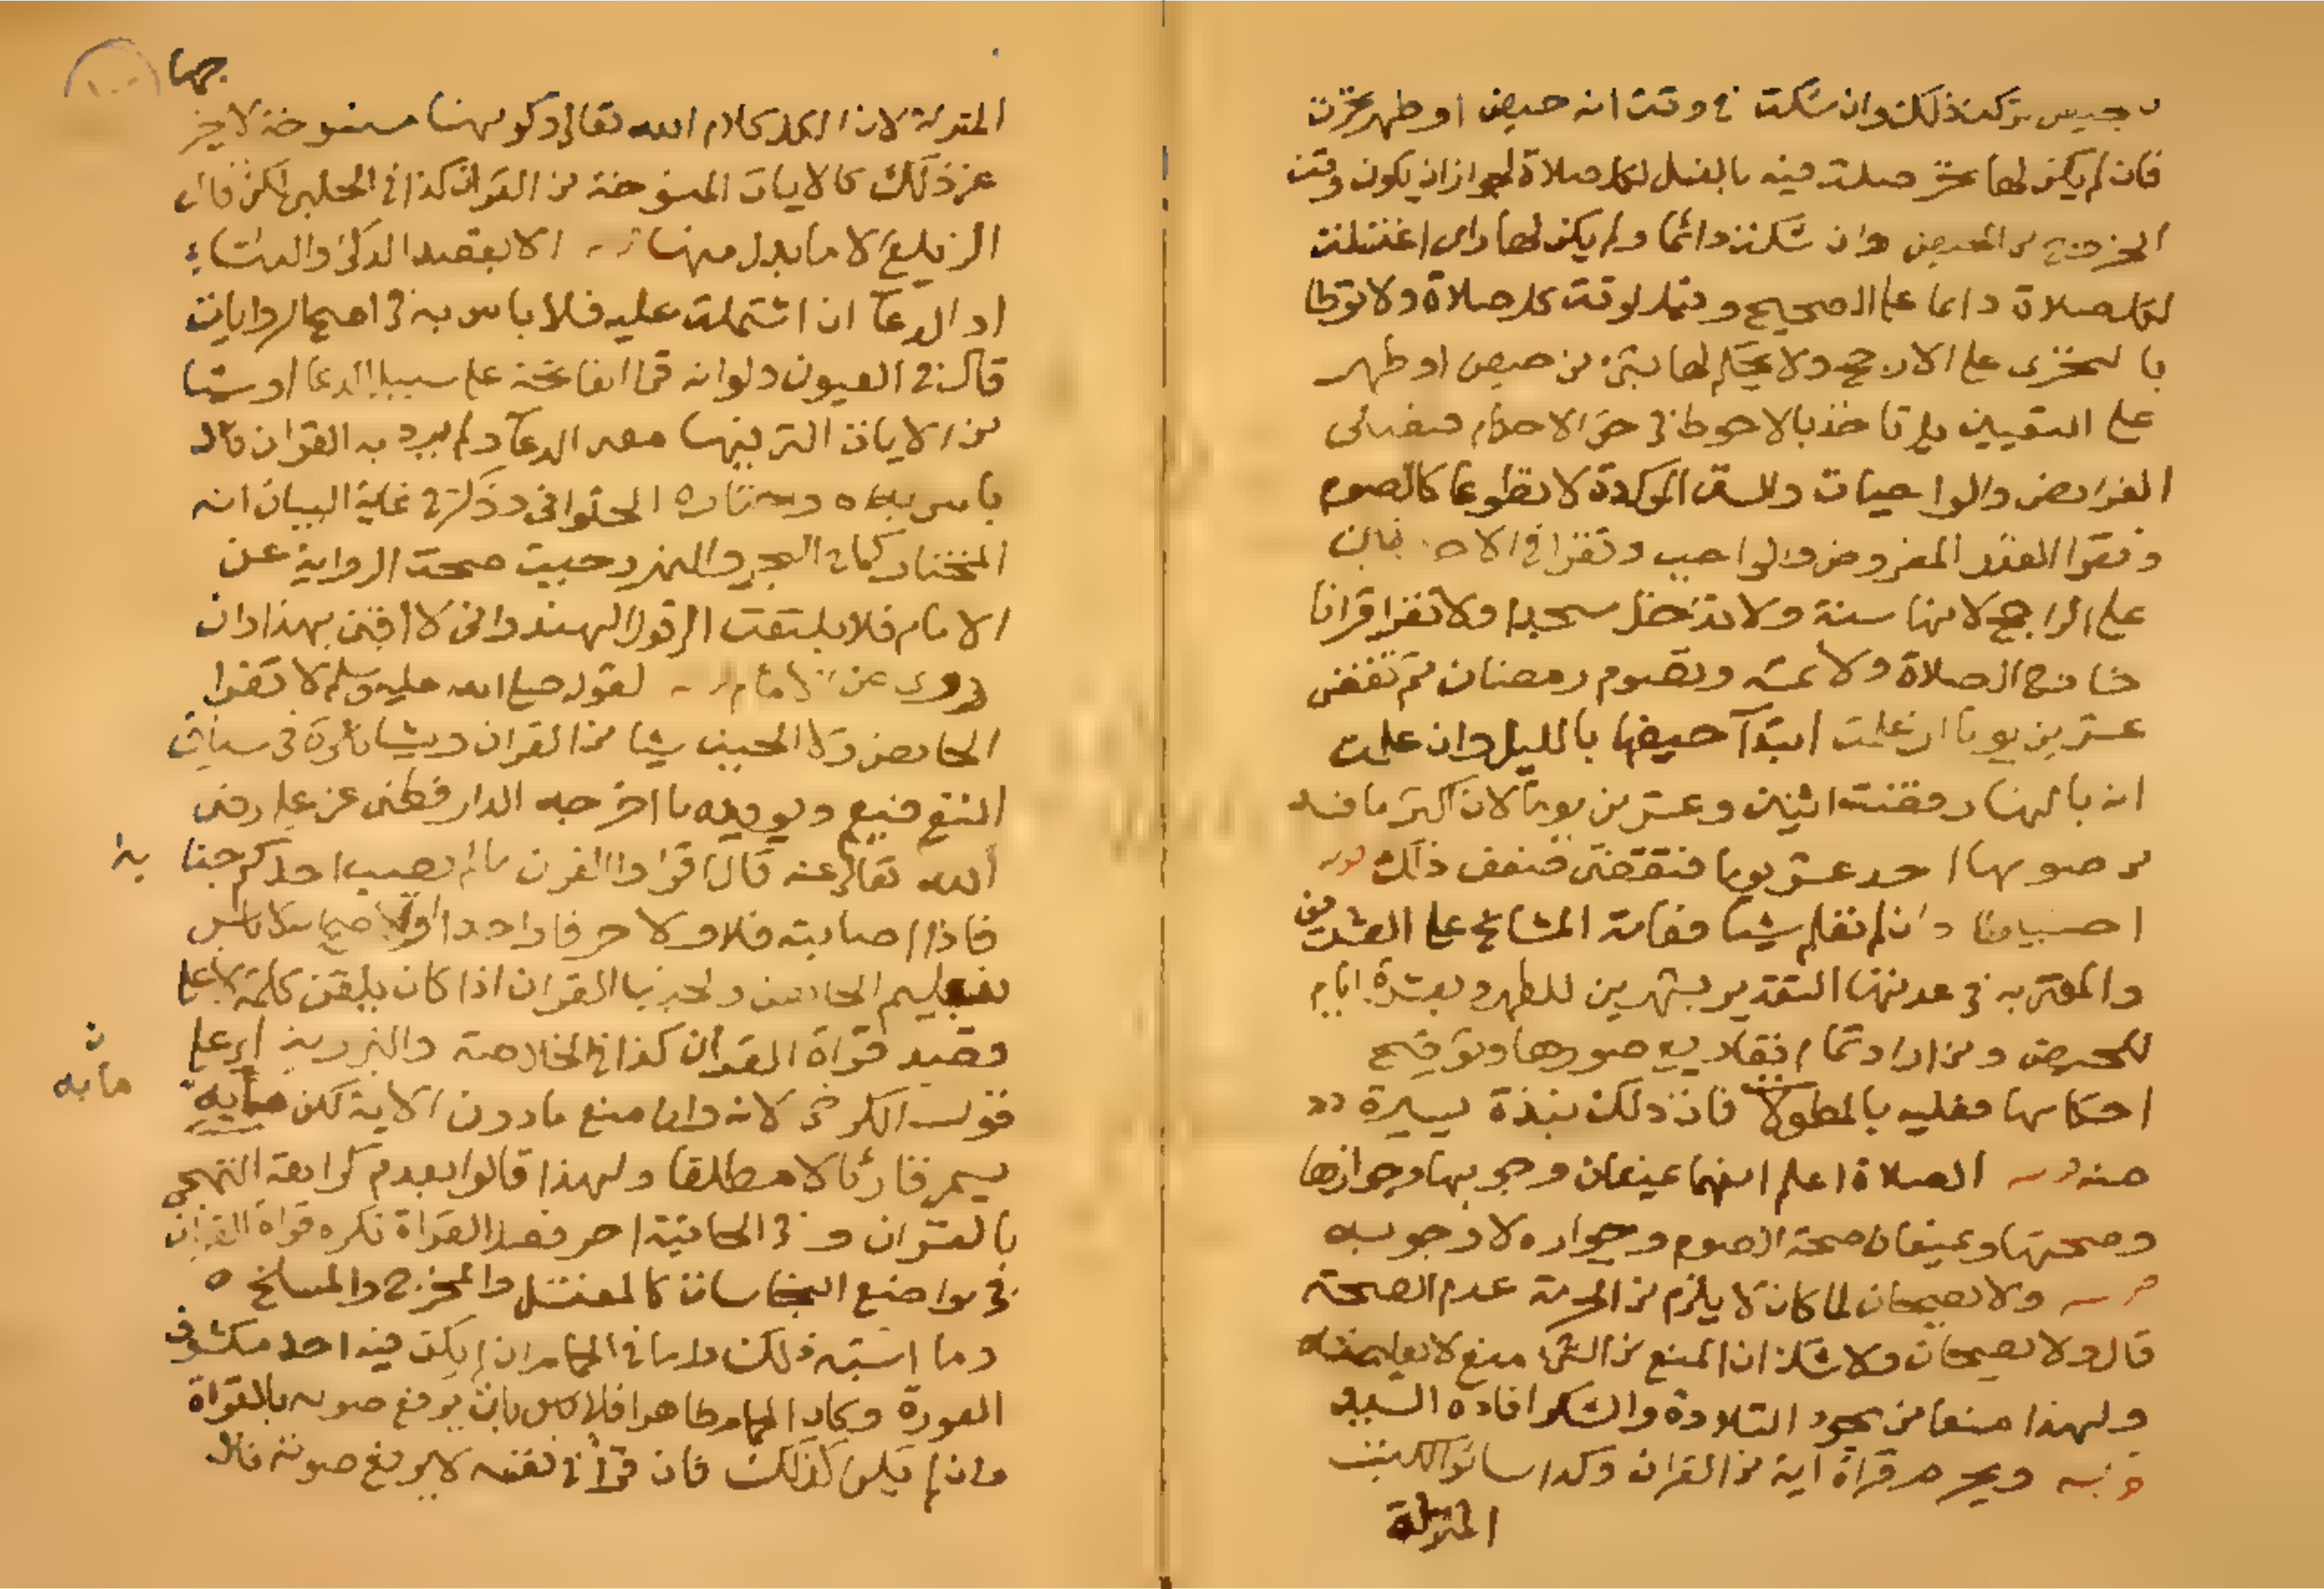 حيض تركت ذلك وان شكت في وقت انه حيض او طهر تحرت
فان لم يكن لها تحر صلت فيه بالغسل لكل صلاة لجواز ان يكون وقت
الخروج من الحيض وان شكت دائما ولم يكن لها راى اغتسلت
لكل صلاة دائما على الصحيح وقيل لوقت كل صلاة ولا توطا
بالتحرى على الارجح ولا يحكم لها بشئ من حيض او طهر
على التعيين بل تاخذ بالاحوط في حق الاحكام فتصلى
الفرائض والواجبات والسنن الموكدة لا تطوعا كالصوم
وتقرا القدر المفروض والواجب وتقرا في الاخريين
على الراجح لانها سنة ولا تدخل مسجدا ولا تقرا قرانا
خارج الصلاة ولا تمسه وتصوم رمضان ثم تقضى
عشرين يوما ان علمت ابتدآ حيضها بالليل وان علمت
انه بالنهار فقضت اثنين وعشرين يوما لان اكثر ما فسد
من صومها احد عشر يوما فتقضى ضعف ذلك
احتياطا وان لم تعلم شيا فعامة المشائخ على العشرين
والمفتى به في عدتها التقدير بشهرين للطهر وبعشرة ايام
للحيض ومن اراد تمام تفاريع صورها وتوضيح
احكامها فعليه بالمطولات فان ذلك نبذة يسيرة
منه الصلاة اعلم انهما يمنعان وجوبها وجوازها
وصحتها ويمنعان صحة الصوم وجوازه لا وجوبه
ولا يصحان لما كان لا يلزم من الحرمة عدم الصحة
قال ولا يصحان ولا شك ان المنع من الشئ منع لابعاضه
ولهذا منعا من سجود التلاوة والشكر افاده السيد
ويحرم قراة آية من القران وكذا سائر الكتب
المنزلة
جها
المنزلة لان الكل كلام الله تعالى وكونها منسوخة لا يخر
عن ذلك كالايات المنسوخة من القران كذا في الحلبى لكن قال
الزيلعى لا ما بدل منها الا بقصد الذكر والثناء
او الدعآ ان اشتملت عليه فلا باس به في اصح الروايات
قال في العيون ولو انه قرا الفاتحة على سبيل الدعا او شيا
من الايات التى فيها معنى الدعآ ولم يرد به القران فلا
باس به واختاره الحلوانى وذكر في غاية البيان انه
المختار كما في البحر والنهر وحيث صحت الرواية عن
الامام فلا يلتفت الى قول الهندوانى لا افتى بهذا وان
روى عن الامام لقوله صلى الله عليه وسلم لا تقرا
الحائض ولا الجنب شيا من القران وشيا نكرة في سياق
النفى فتعم ويويده ما اخرجه الدارقطنى عن على رضى
الله تعالى عنه قال اقروا القرن ما لم يصب احدكم جنا به
فاذا اصابته فلا ولا حرفا واحدا ولا باس
بتعليم الحائض والجنب القران اذا كان يلقن كلمة لا على
قصد قراة القران كذا في الخلاصة والبزازية اى على
قول الكرخى لانه وان منع ما دون الاية لكن ما به
يسمى قارئا لا مطلقا ولهذا قالوا بعدم كراهة التهجى
بالقران وفي الخانية اخر فصل القراة تكره قراة القران
في مواضع النجاسات كالمغتسل والمخرج والمسلخ
وما اشبه ذلك واما في الحمام ان لم يكن فيه احد مكشوف
العورة وكان الحمام طاهرا فلا باس بان يرفع صوته بالقراة
وان لم يكن كذلك فان قرأ في نفسه لا يرفع صوته فلا